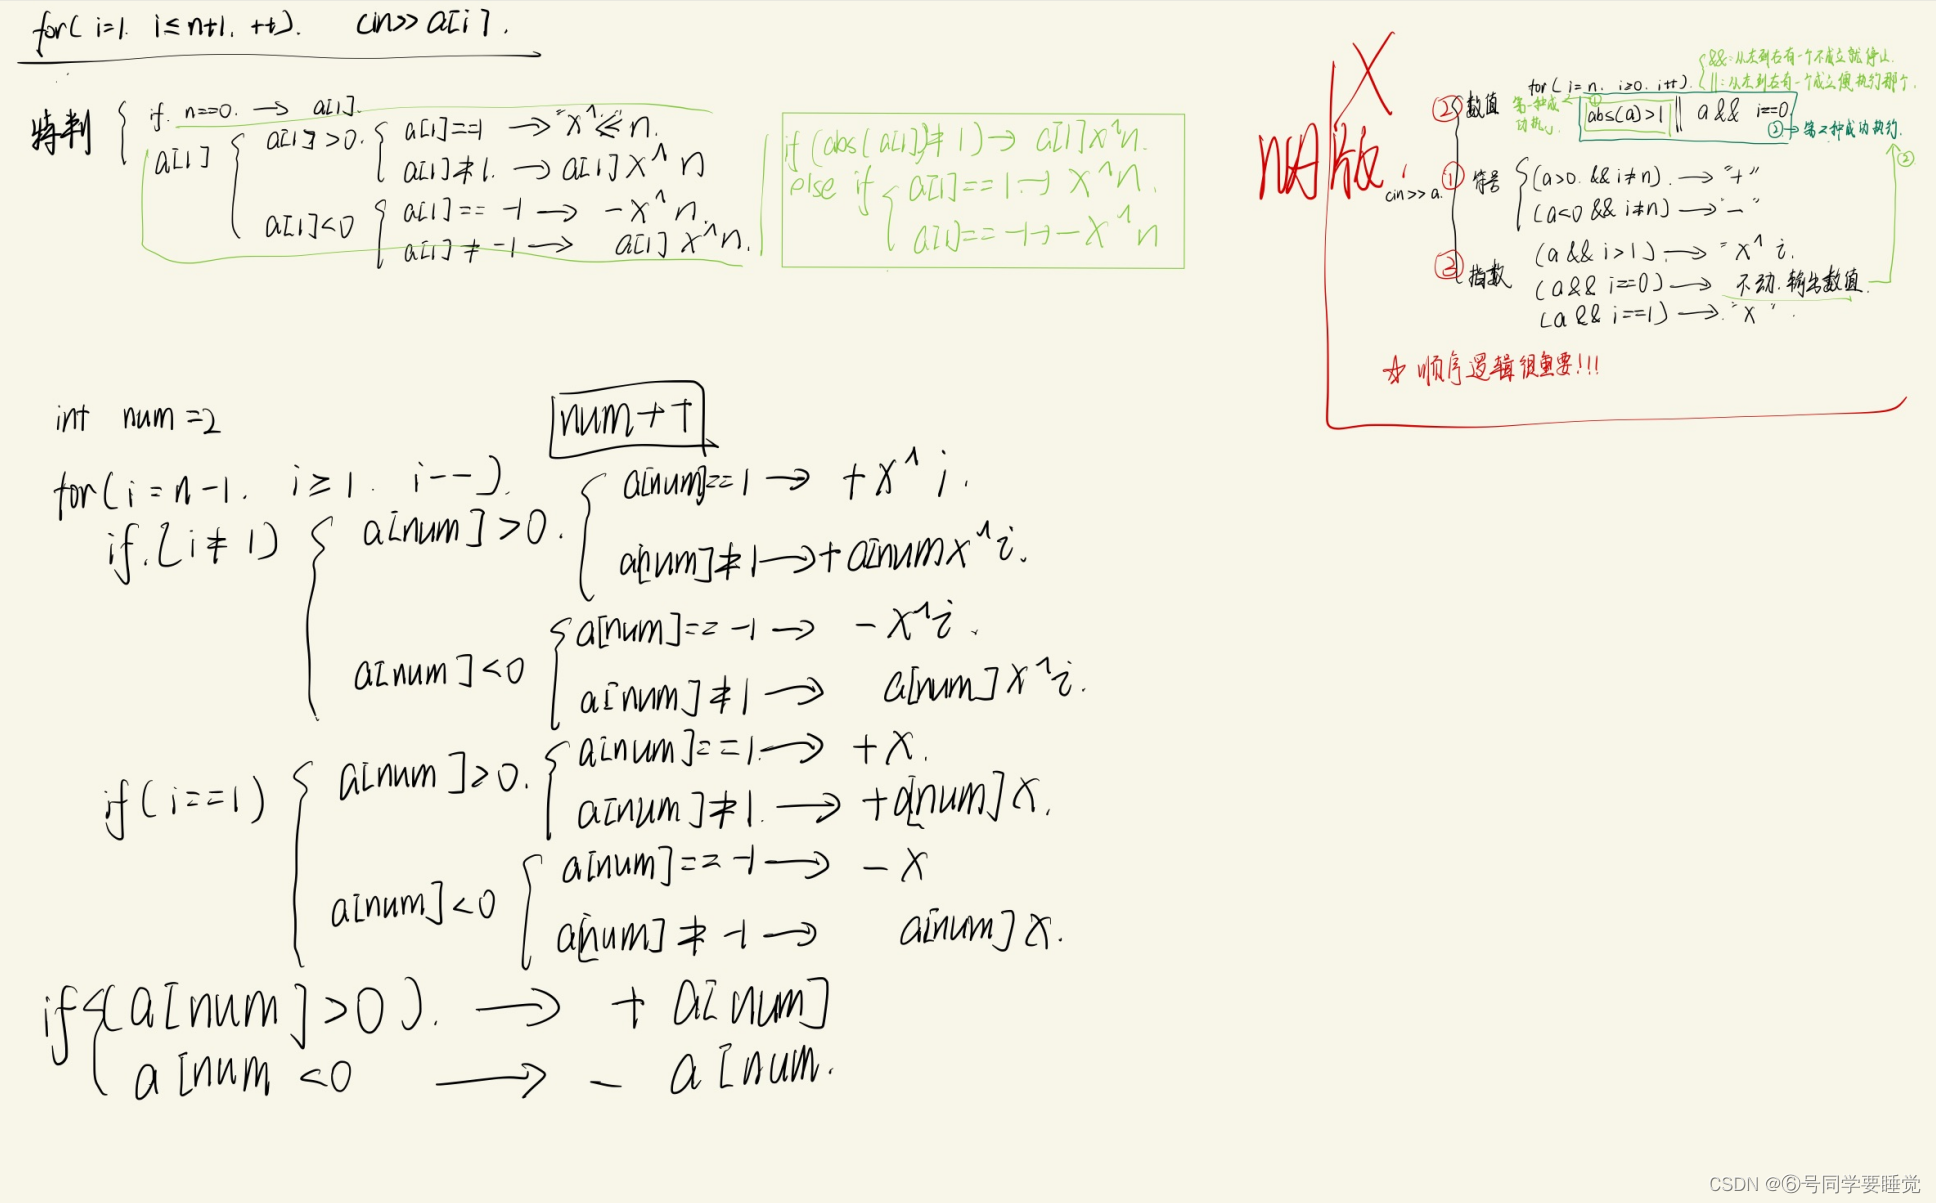 for( i=1. i≤n+1. ++). cin>> a[i].
特判
if. n==0. → a[1].
a[1]
a[1]>0.
a[1]==1 → "x^" ≤ n.
a[1]≠1. → a[1]x^n
a[1]<0
a[1]== -1 → -x^n.
a[1]≠ -1 → a[1]x^n.
if (abs(a[1])≠1) → a[1]x^n.
else if
a[1]==1. → x^n.
a[1]==-1 → -x^n
int num =2
num++
for( i=n-1. i≥1. i--).
if.(i≠1)
a[num]>0.
a[num]==1 → +x^i.
a[num]≠1 → +a[numx^i.
a[num]<0
a[num]== -1 → -x^i.
a[num]≠1 → a[num]x^i.
if(i==1)
a[num]>0.
a[num]==1. → +x.
a[num]≠1. → +a[num]x.
a[num]<0
a[num]== -1 → -x
a[num]≠ -1 → a[num]x.
if
(a[num]>0). → + a[num]
a[num <0 → - a[num.
X
版.
cin>>a.
&&:从左到右有一个不成立就停止.
||:从左到右有一个成立便执行那个.
for( i=n. i≥0. i++).
② 数值
①
abs(a)>1 || a&& i==0
② → 第二种成功执行.
① 符号
(a>0. && i≠n). → "+"
(a<0 && i≠n) → "-"
② 指数
(a && i>1). → "x^i.
(a&& i==0) → 不动.输出数值.
(a && i==1) → "x".
②
☆ 顺序逻辑很重要!!!
CSDN @⑥号同学要睡觉